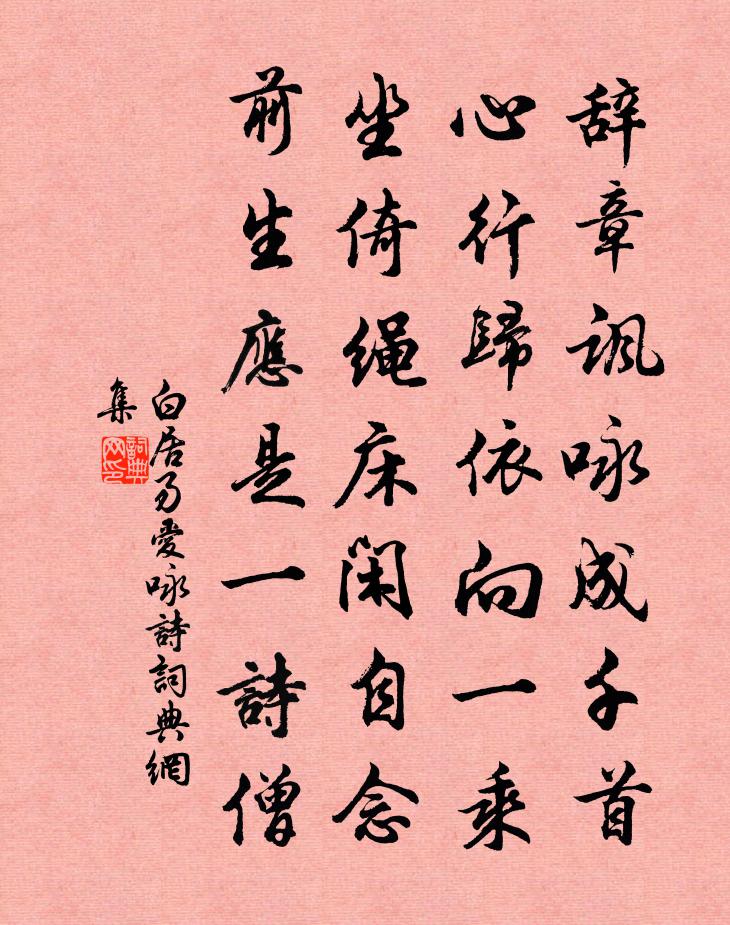 辞章讽咏成千首
心行歸依向一乘
坐倚绳床闲自念
前生應是一詩僧
白居易愛咏詩詞典網
集
詞典
网印